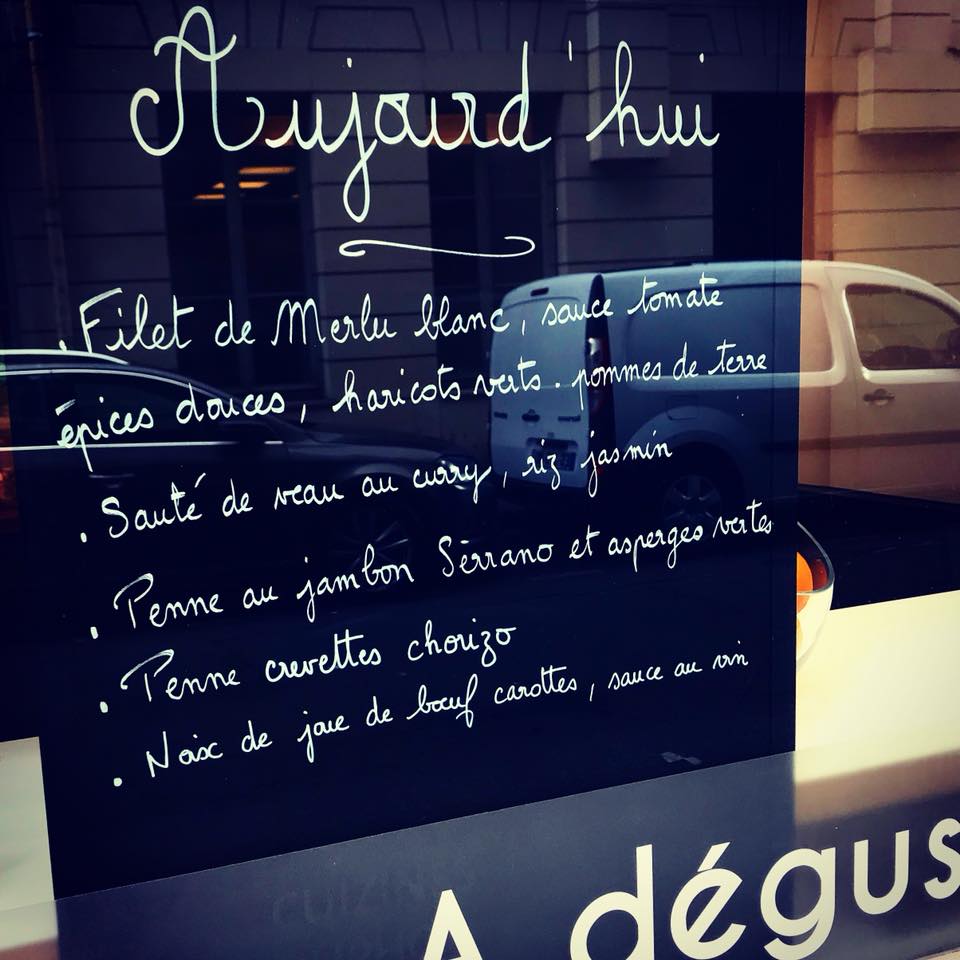 Aujourd'hui
. Filet de Merlu blanc, sauce tomate
épices douces, haricots verts. pommes de terre
. Sauté de veau au curry, riz jasmin
. Penne au jambon Serrano et asperges vertes
. Penne crevettes chorizo
. Noix de joue de bœuf carottes, sauce au vin
A dégus